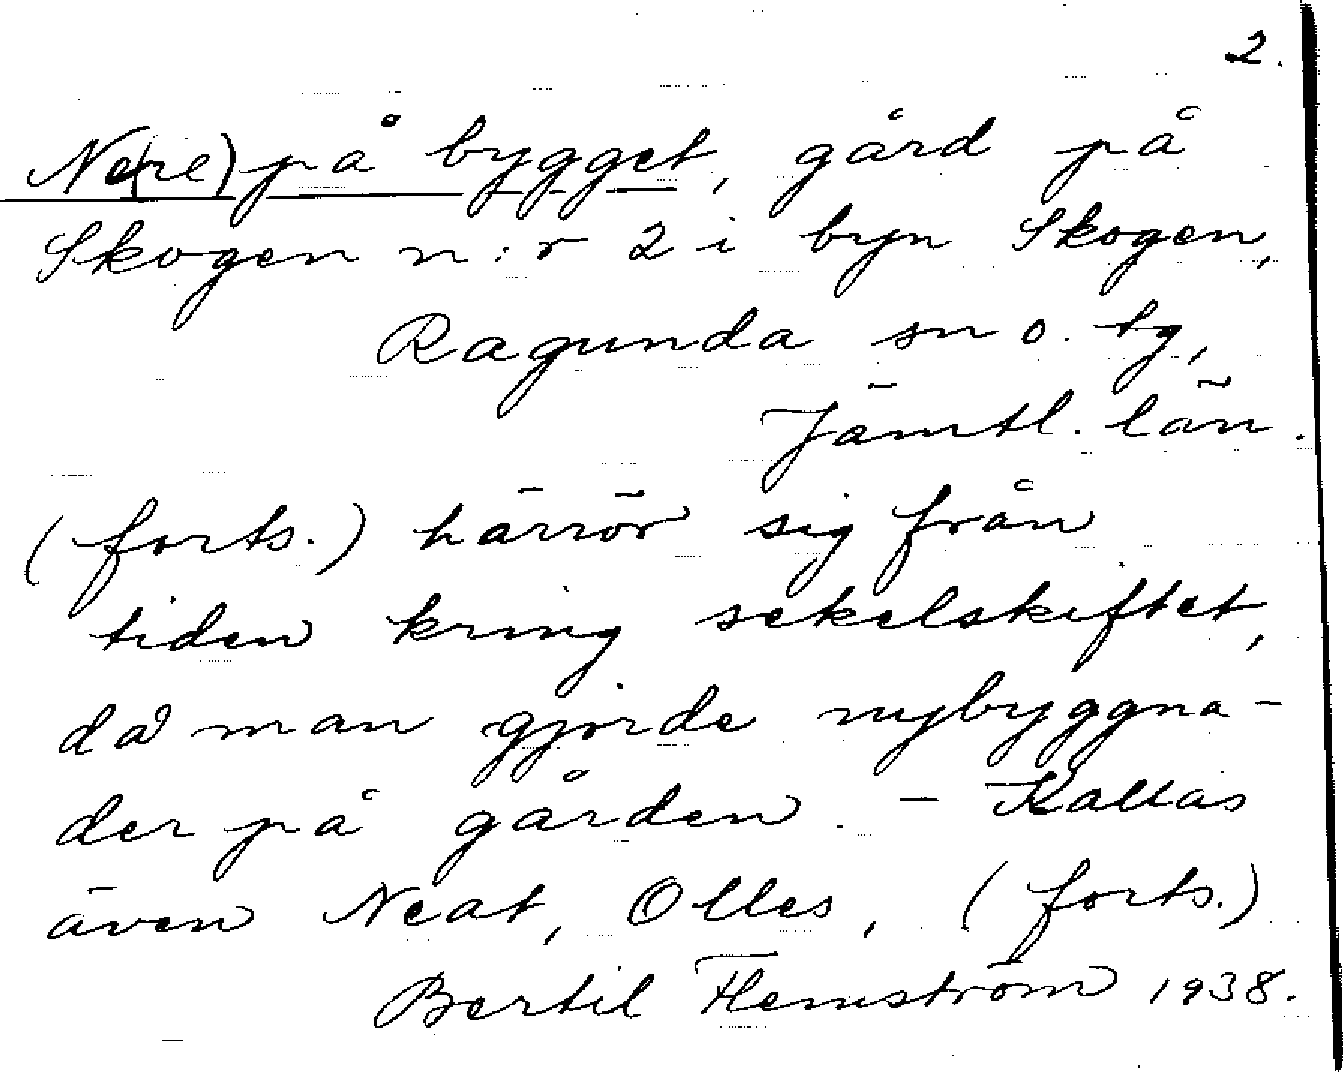 2.
Ne(re) på bygget, gård på
Skogen n:r 2 i byn Skogen,
Ragunda sn o. tg,
Jämtl. län.
(forts.) härrör sig från
tiden kring sekelskiftet,
då man gjorde nybyggna-
der på gården. - Kallas
även Neat, Olles, (forts.)
Bertil Flemström 1938.